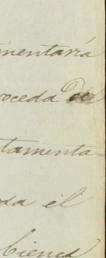 mentaria
roceda
tamenta-
da él
bienes